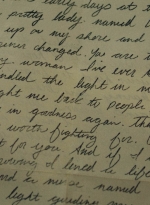 early days at t
pretty lady named
up on my shore and
ever changed. You are
y woman I've ever
ndled the light in m
ght me back to people
in goodness again, tha
worth fighting for.
t for you. And if I
I lened is life
rd to me or named
light guiding m